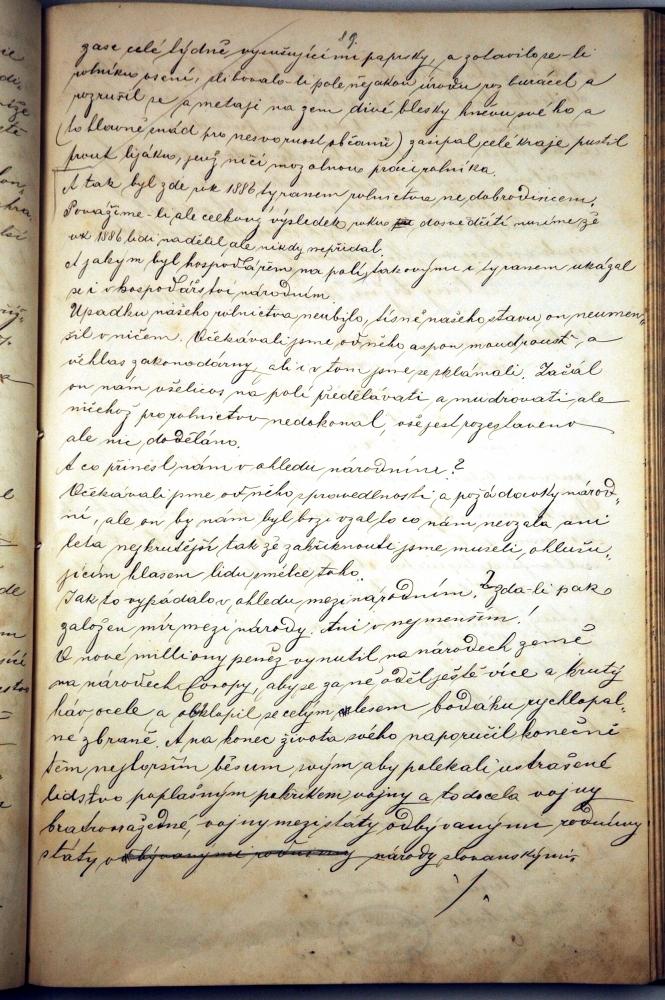 89.
zase celé týdně vysušujícími paprsky, a zotavilo se-li
rolníku osení, slibovalo-li pole nějakou úrodu roz buráčel a
rozrušil se a metaji na zem divé blesky hněvu své ho a
(to hlavně snád pro nesvornost občanů) zasipal celé kraje pustil
prout lijáků, jenž ničí mozolnou praci rolníka.
A tak byl zde rok 1886 tyranem rolnictva ne dobrodincem.
Považíme-li ale celkový výsledek roku dosvědčiti musíme že
rok 1886 lidi nadělil ale nikdy nepřidal.
A jakym byl hospodářem na poli, takovými i tyranem ukázal
se i v hospodářství národním.
Upadku našeho rolnictva neubylo, tísně našeho stavu on neumen-
šil v ničem. Očekávali jsme od něho aspon moudrousť, a
věhlas zakonodárny, ali i v tom jsme se sklámali. Začal
on nam všelicos na polí předělávati a mudrovati, ale
ničehož pro rolnictvo nedokonal, vše jest rozestaveno
ale nic doděláno.
A co přinesl nám v ohledu národnim?
Očekávali jme od něho spravedlnosti, a požádavky národ-
ní, ale on by nám byl brzi vzal to co nám nevzala ani
leta nejkrutější tak že zakřiknouti jsme museli ohlušu-
jícím hlasem lidu mělce toho.
Jak to vypádalo v ohledu mezi národním? zda-li pak
založen mír mezi národy. Ani v nejmenším!
O nové milliony peněz vynutil na národech země
na národech Evropy, aby se za ně oděl ještě více a krutý
háv ocele a obklopil se celým lesem bodaku rychlopal-
né zbraně. A na konec života svého naporučil konečně
těm nejhorším běsum svym aby polekali ustrašené
lidstvo poplašným pokrikem vojny a to docela vojny
bratrovražedné, vojny mezi státy odbývanými rodnímy
státy odbývanými rodnimy národy slovanskými.